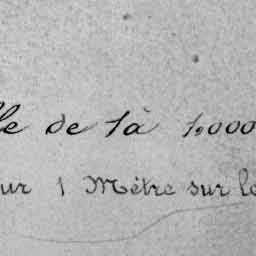 le de 1 à 1,000
ur 1 Mètre sur le